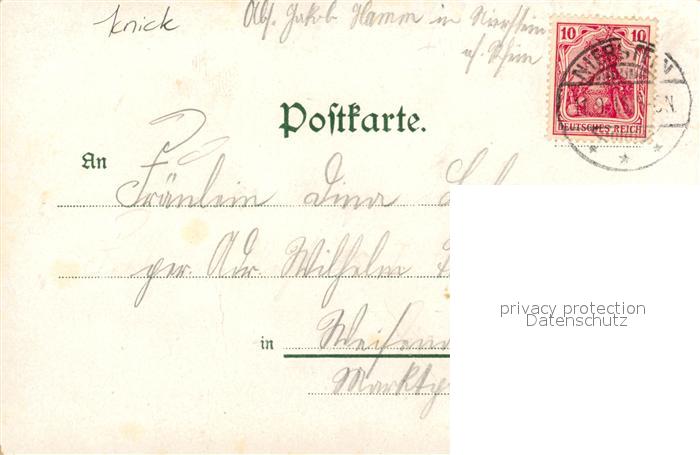 knick
Abs. Jakob Hamm in Nierstein
a/ Rhein
10 10
DEUTSCHES REICH
NIERSTEIN
Postkarte.
An
Fräulein Dina
per. Adr. Wilhelm
in
Marktp
privacy protection
Datenschutz